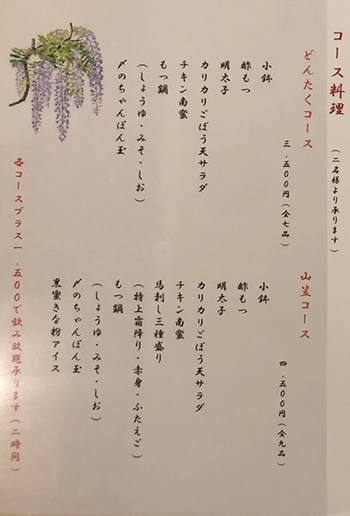 コース料理
(二名様より承ります)
どんたくコース
三・五〇〇円(全七品)
小鉢
酢もつ
明太子
カリカリごぼう天サラダ
チキン南蛮
もつ鍋
(しょうゆ・みそ・しお)
〆のちゃんぽん玉
山笠コース
四・五〇〇円(全九品)
小鉢
酢もつ
明太子
カリカリごぼう天サラダ
チキン南蛮
馬刺し三種盛り
(特上霜降り・赤身・ふたえご)
もつ鍋
(しょうゆ・みそ・しお)
〆のちゃんぽん玉
黒蜜きな粉アイス
各コースプラス一・五〇〇で飲み放題承ります(二時間)